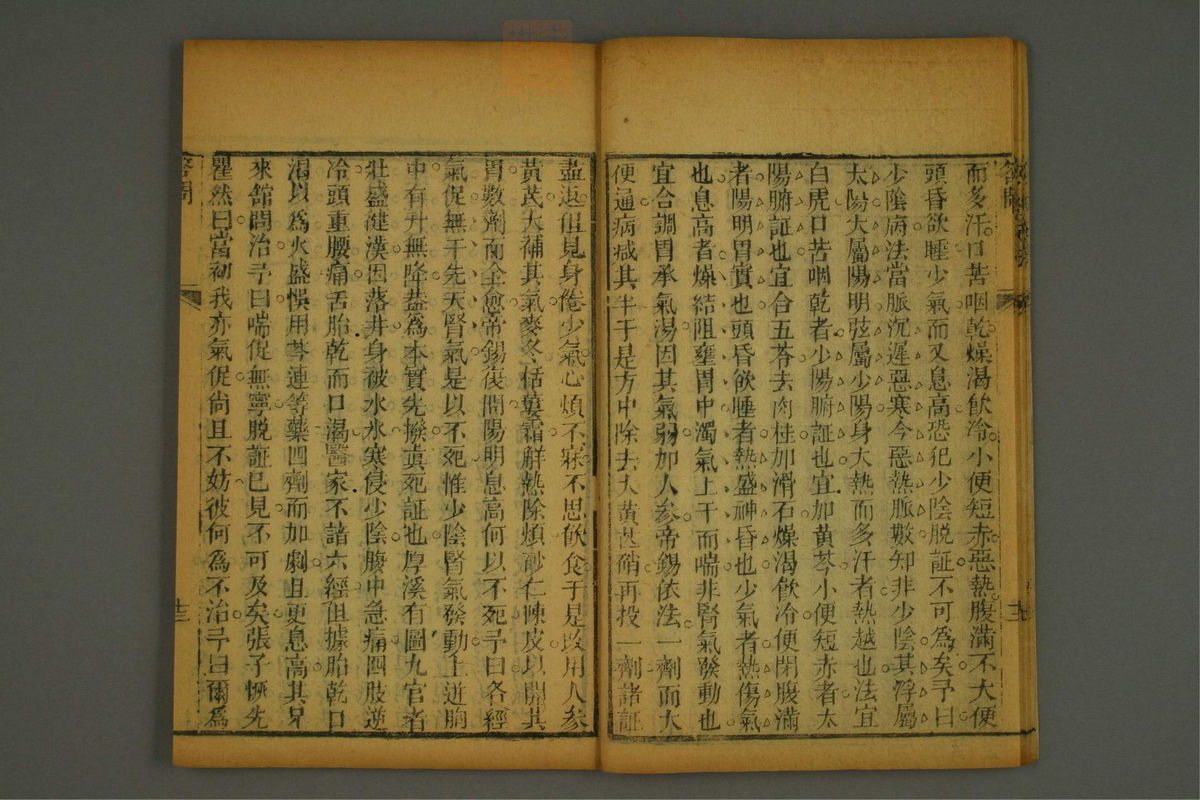 而多汗口苦咽乾燥渴飲冷小便短赤惡熱腹滿不大便
頭昏欲睡少氣而又息高恐犯少陰脫証不可為矣予曰
少陰病法當脈沉遲惡寒今惡熱脈數知非少陰其浮屬
太陽大屬陽明弦屬少陽身大熱而多汗者熱越也法宜
白虎口苦咽乾者少陽腑証也宜加黃芩小便短赤者太
陽腑証也宜合五苓去肉桂加滑石燥渴飲冷便閉腹滿
者陽明胃實也頭昏欲睡者熱盛神昏也少氣者熱傷氣
也息高者燥結阻壅胃中濁氣上干而喘非腎氣發動也
宜合調胃承氣湯因其氣弱加人參帝錫依法一劑而大
便通病减其半于是方中除去大黃芒硝再投一劑諸証
盡退但見身倦少氣心煩不寐不思飲食于是改用人參
黃芪大補其氣麥冬栝蔞霜解熱除煩砂仁陳皮以開其
胃數劑而全愈帝錫復問陽明息高何以不死予曰各經
氣促無干先天腎氣是以不死惟少陰腎氣發動上逆胸
中有升無降蓋為本實先撥眞死証也厚溪有圖九官者
壯盛健漢因落井身被水水寒侵少陰腹中急痛四肢逆
冷頭重腰痛舌胎乾而口渴醫家不諳六經但據胎乾口
渴以為火盛悞用芩連等藥四劑而加劇且更息高其兄
來舘問治予曰喘促無寧脫証已見不可及矣張子恢先
瞿然曰當初我亦氣促尙且不妨彼何為不治予曰爾為
答問